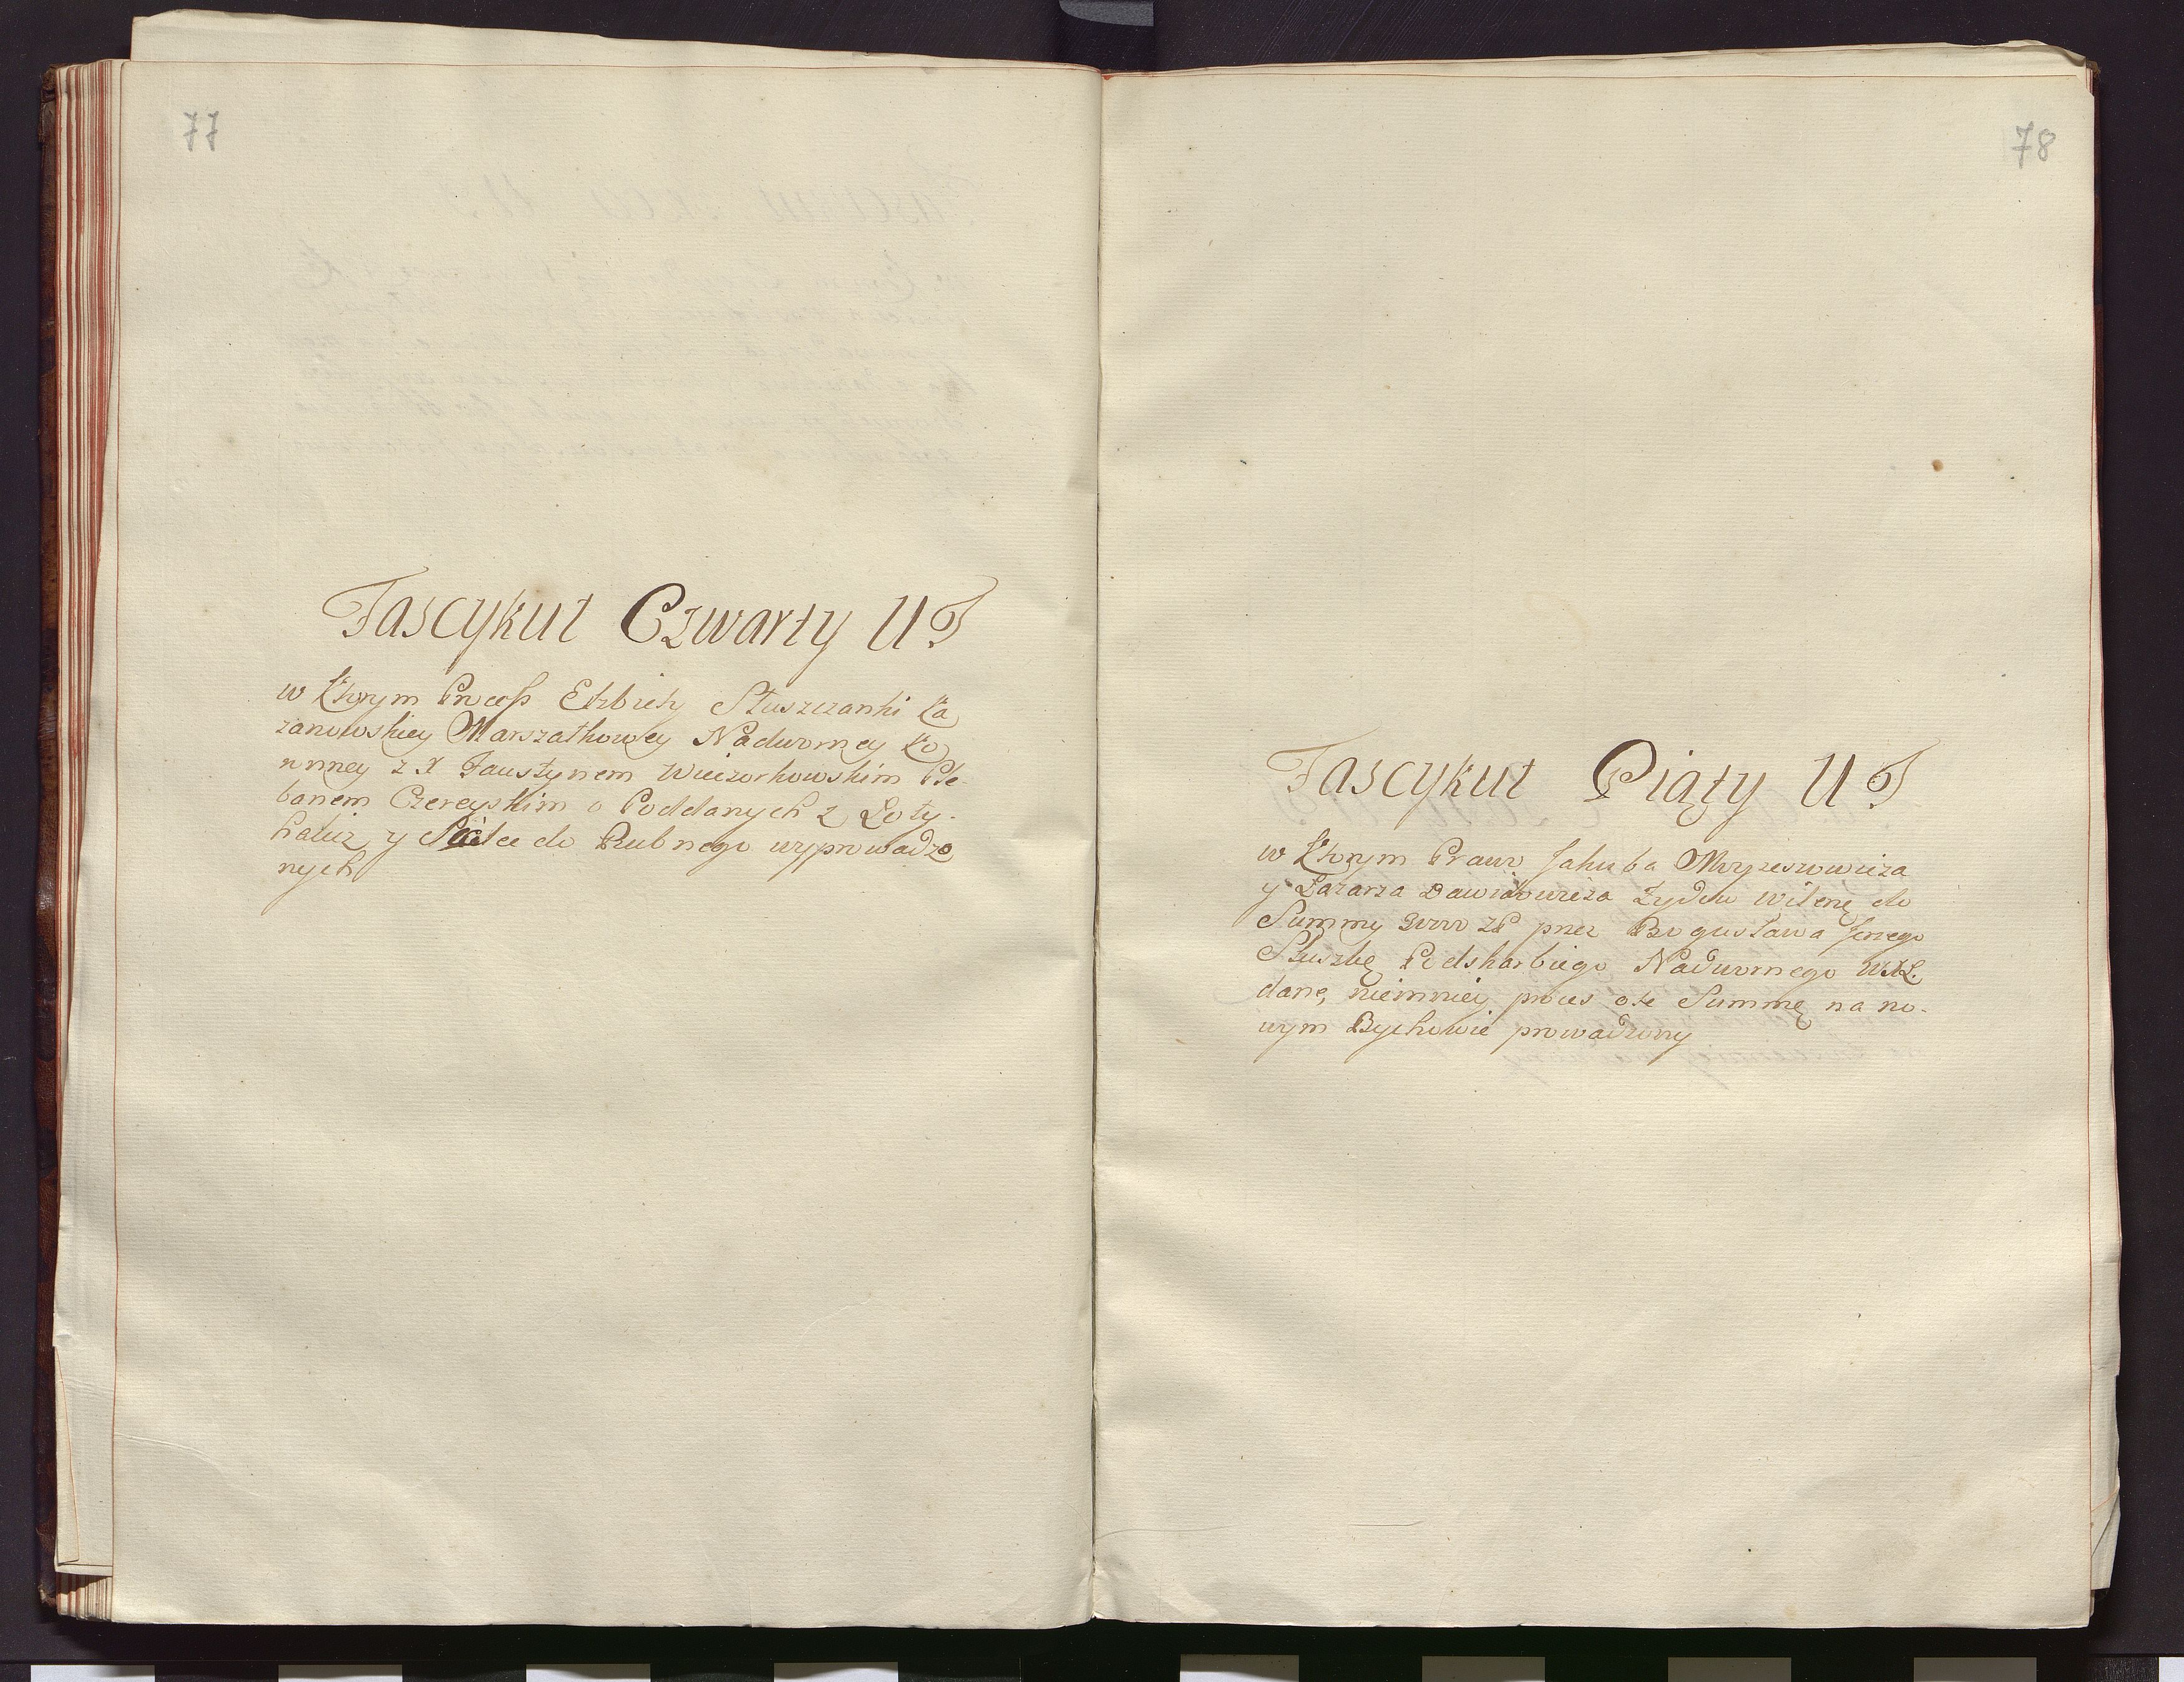 77
Fascykuł Czwarty U T
w Ktorym Process Elzbiety Słuszczanki Ka
zanowskiey Marszałkowey Nadworney Ko
ronney z X Faustynem Wieczorkowskim Ple-
banem Czereyskim o Poddanych z Łoty-
halicz y do Rubnego wyprowadzo
nych
78
Fascykuł Piąty U T
w Ktorym Prawo Jakuba Moyzeszowicza
y Łazarza Dawidowicza Zydow Wilenę do
Summy 3000 zł przez Bogusława Jerzego
Słuszkę Podskarbiego Nadwornego WXL.
dane, niemniey proces o te Summę na no-
wym Bychowie prowadzony